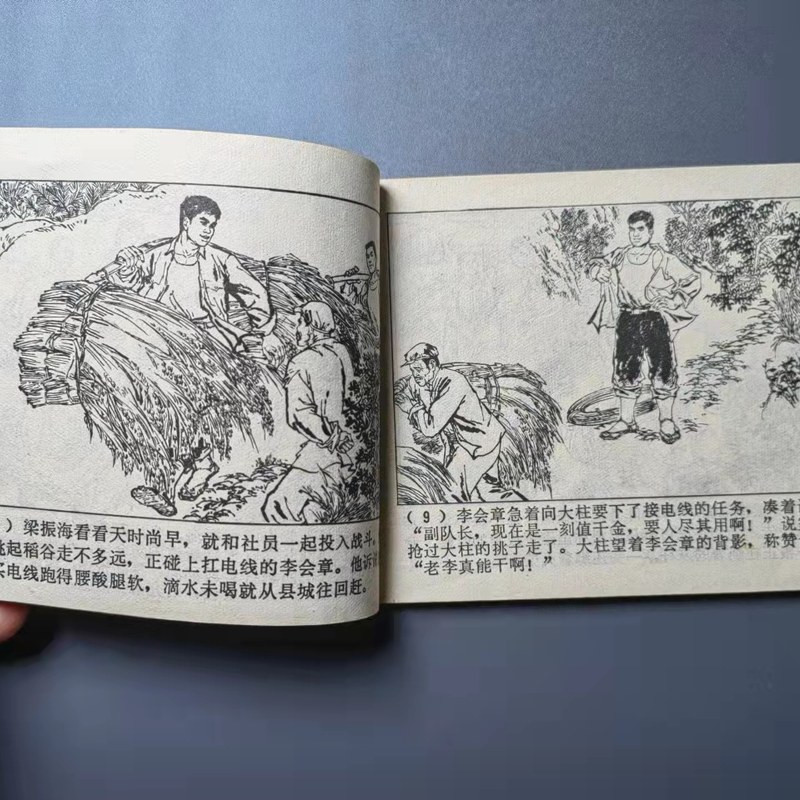 ）梁振海看看天时尚早，就和社员一起投入战斗。
挑起稻谷走不多远，正碰上扛电线的李会章。他诉
买电线跑得腰酸腿软，滴水未喝就从县城往回赶。
（9）李会章急着向大柱要下了接电线的任务，凑着
“副队长，现在是一刻值千金，要人尽其用啊！”说
抢过大柱的挑子走了。大柱望着李会章的背影，称赞
“老李真能干啊！”